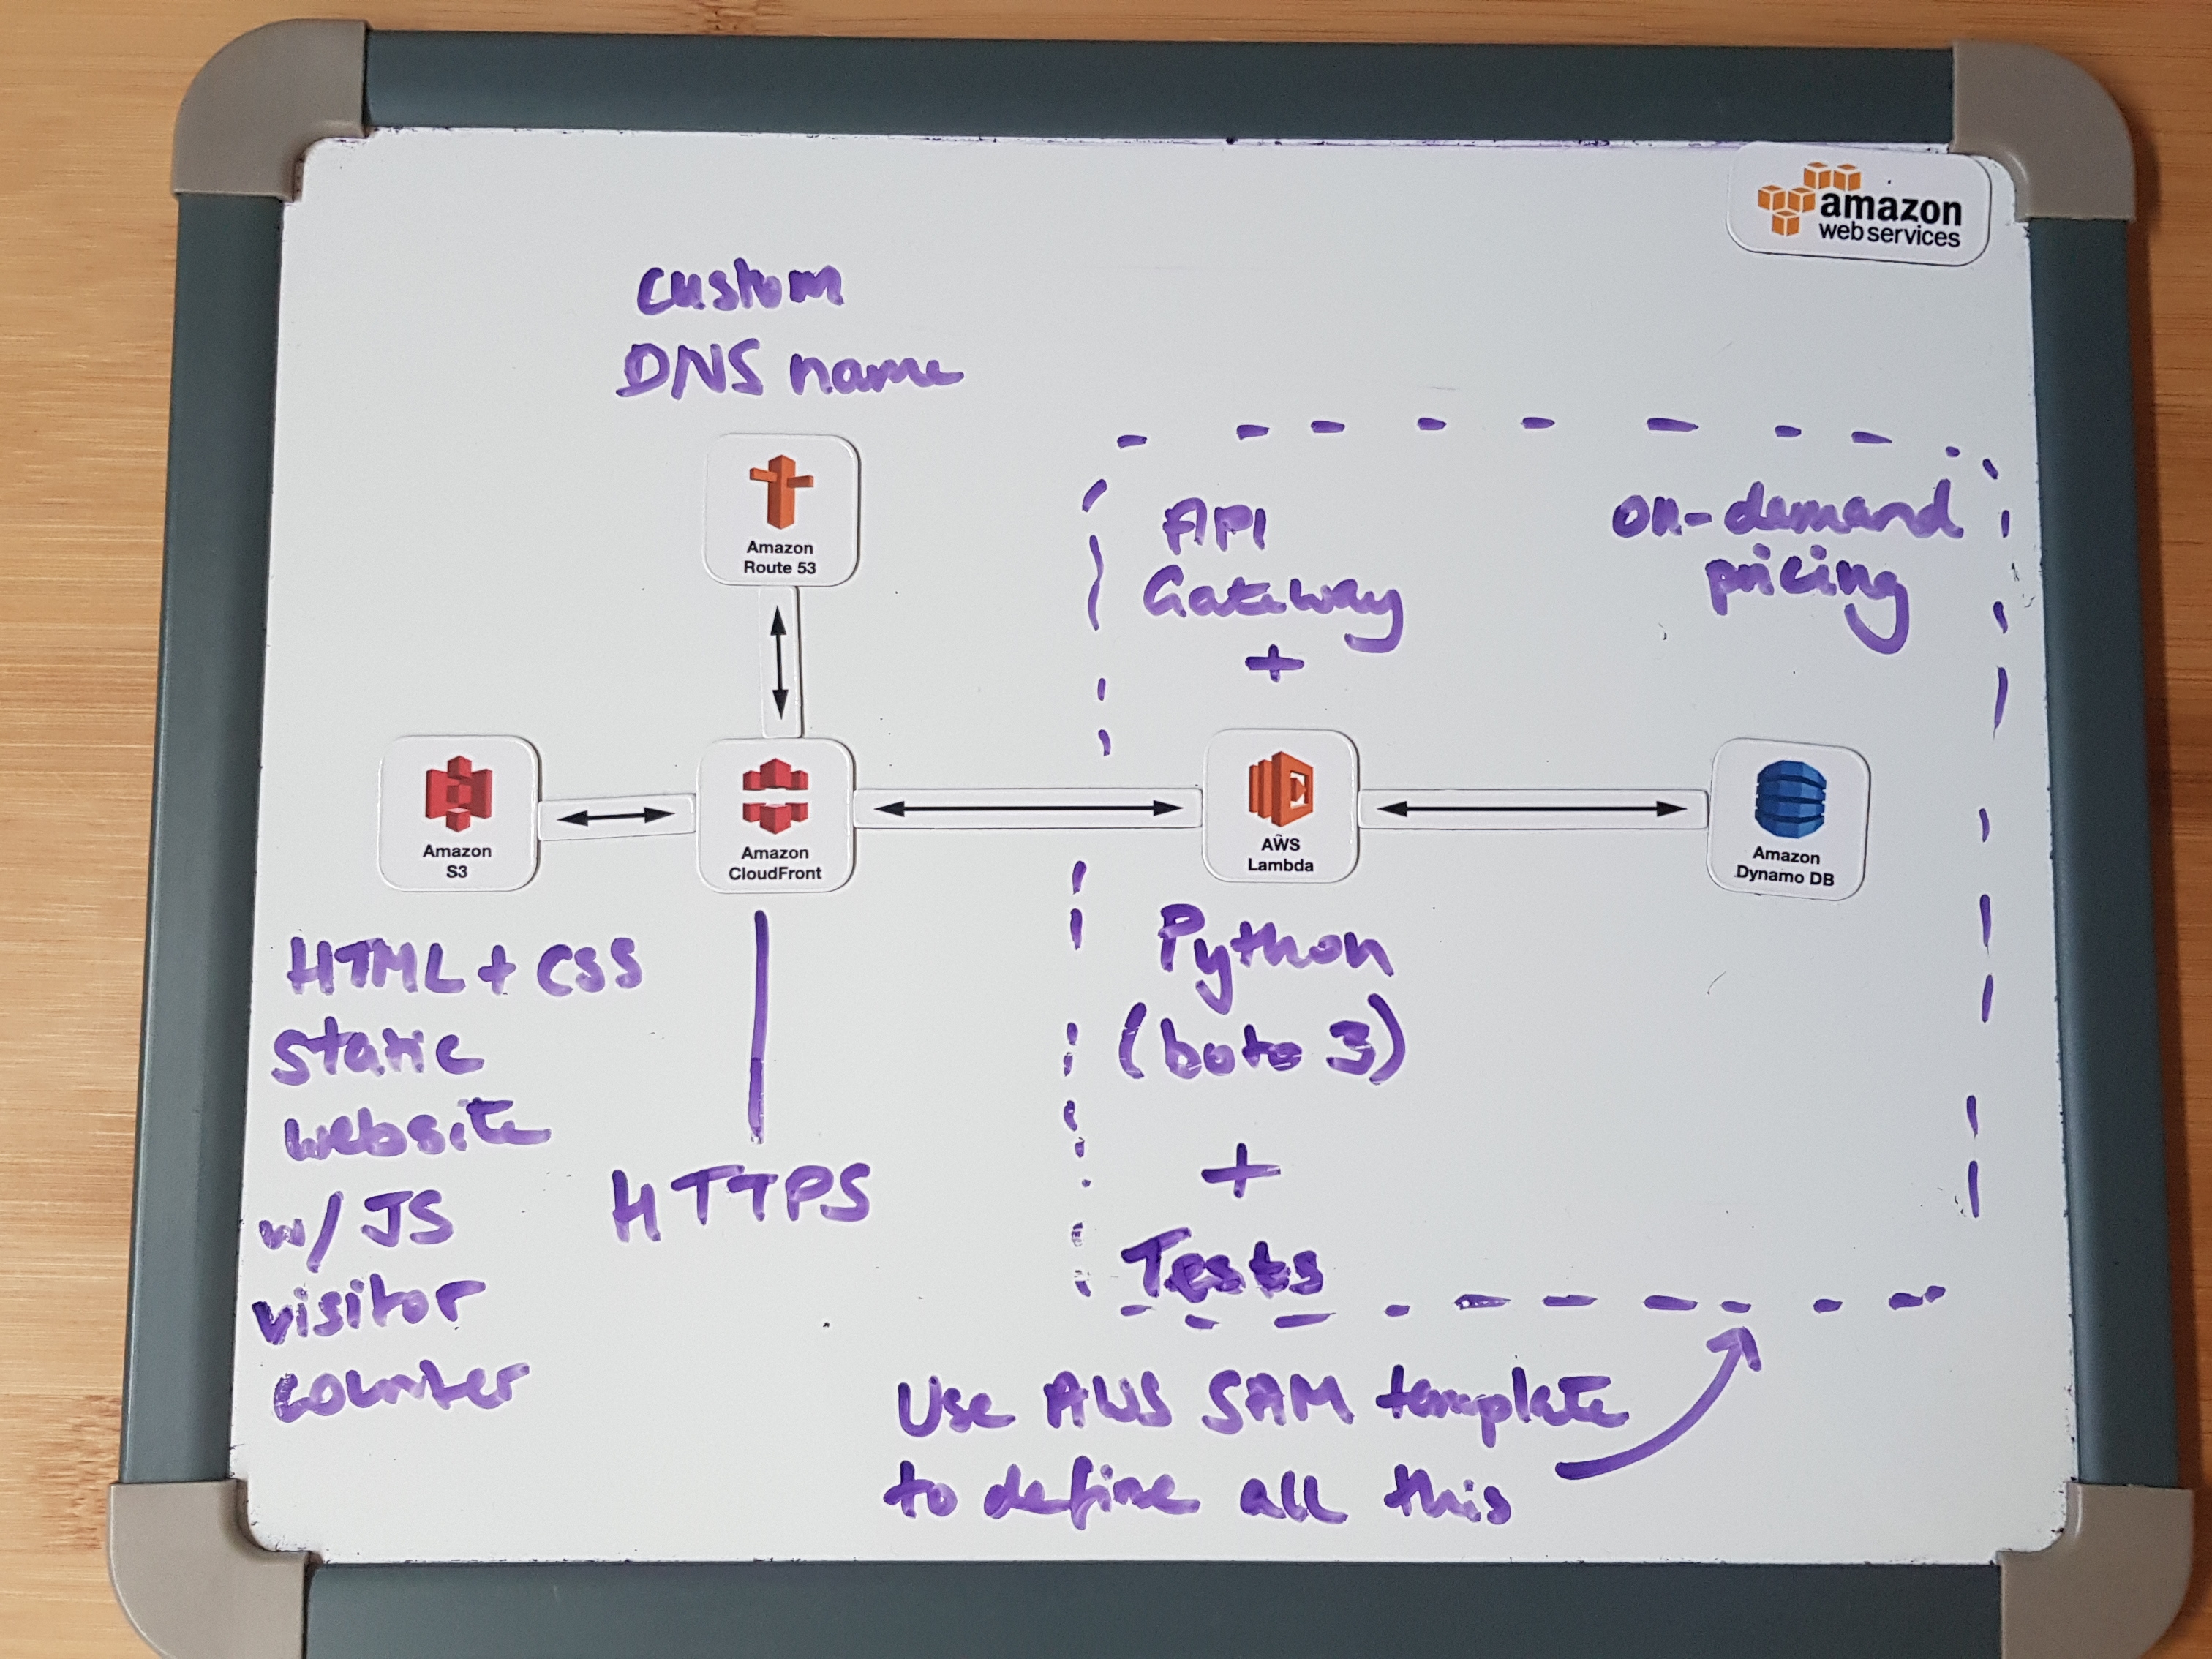 amazon
web services
custom
DNS name
Amazon
Route 53
API
Gateway
+
on-demand
pricing
Amazon
S3
Amazon
CloudFront
AWS
Lambda
Amazon
Dynamo DB
HTML + CSS
static
website
w/ JS
visitor
counter
HTTPS
Python
(boto 3)
+
Tests
Use AWS SAM template
to define all this